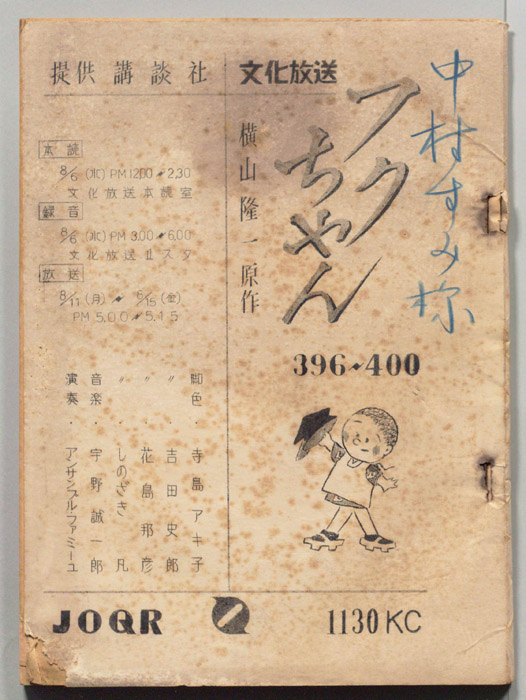 中村すみ様
文化放送
フクちゃん
横山隆一原作
396~400
提供 講談社
本読
8/6 (水) PM 12.00~2.30
文化放送本読室
録音
8/6 (水) PM 3.00~6.00
文化放送 スタ
放送
8/11 (月) ~ 8/15 (金)
PM 5.00~5.15
脚色・寺島アキ子
〃 ・吉田史郎
〃 ・花島邦彦
〃 ・しのざき凡
音楽・宇野誠一郎
演奏・アンサンブル・ファミーユ
JOQR
1130KC